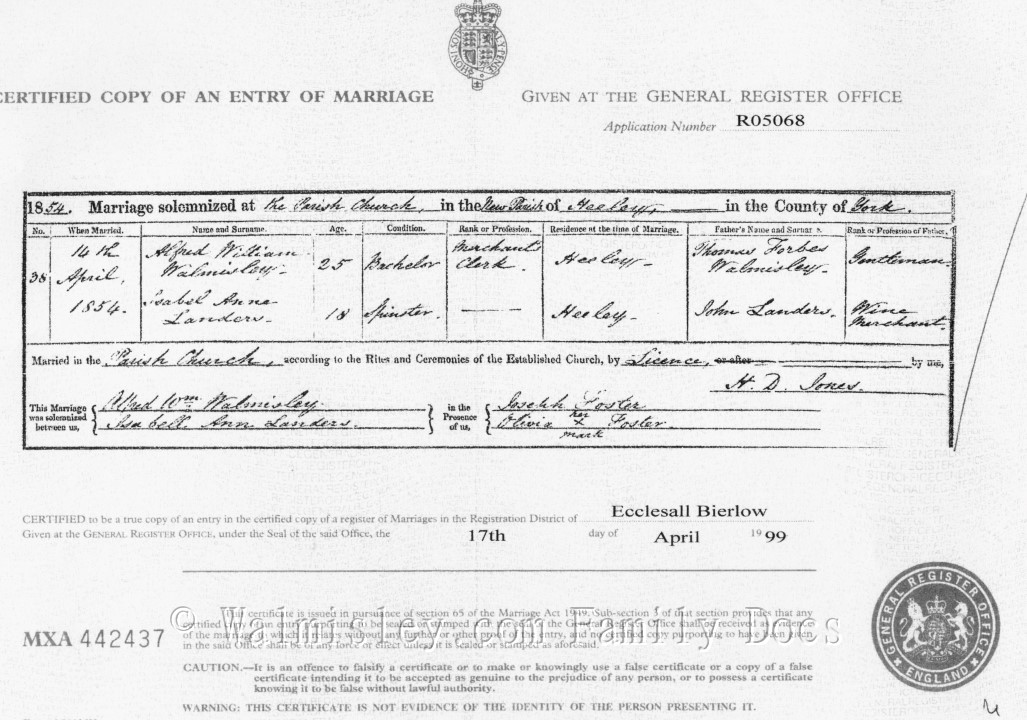 HONI SOI
CERTIFIED COPY OF AN ENTRY OF MARRIAGE
GIVEN AT THE GENERAL REGISTER OFFICE
Application Number R05068
1854. Marriage solemnized at the Parish Church, in the New Parish of Heeley, in the County of York.
No. When Married. Name and Surname. Age. Condition. Rank or Profession. Residence at the time of Marriage. Father's Name and Surname. Rank or Profession of Father.
38 14th April, 1854. Alfred William Walmisley 25 Bachelor Merchant's Clerk. Heeley Thomas Forbes Walmisley. Gentleman
Isabel Anne Landers 18 Spinster. Heeley John Landers. Wine Merchant.
Married in the Parish Church, according to the Rites and Ceremonies of the Established Church, by Licence, or after by me,
H. D. Jones.
This Marriage was solemnized between us, { Alfred Wm Walmisley. Isabell Ann Landers. } in the Presence of us, { Joseph Foster Olivia her x mark Foster.
CERTIFIED to be a true copy of an entry in the certified copy of a register of Marriages in the Registration District of Ecclesall Bierlow
Given at the GENERAL REGISTER OFFICE, under the Seal of the said Office, the 17th day of April 1999
MXA 442437
This certificate is issued in pursuance of section 65 of the Marriage Act 1949. Sub-section 3 of that section provides that any
© Walmisley.com Family Docs
in the said Office shall be of any force or effect unless it is sealed or stamped as aforesaid.
CAUTION.—It is an offence to falsify a certificate or to make or knowingly use a false certificate or a copy of a false
certificate intending it to be accepted as genuine to the prejudice of any person, or to possess a certificate
knowing it to be false without lawful authority.
WARNING: THIS CERTIFICATE IS NOT EVIDENCE OF THE IDENTITY OF THE PERSON PRESENTING IT.
GENERAL REGISTER OFFICE
ENGLAND